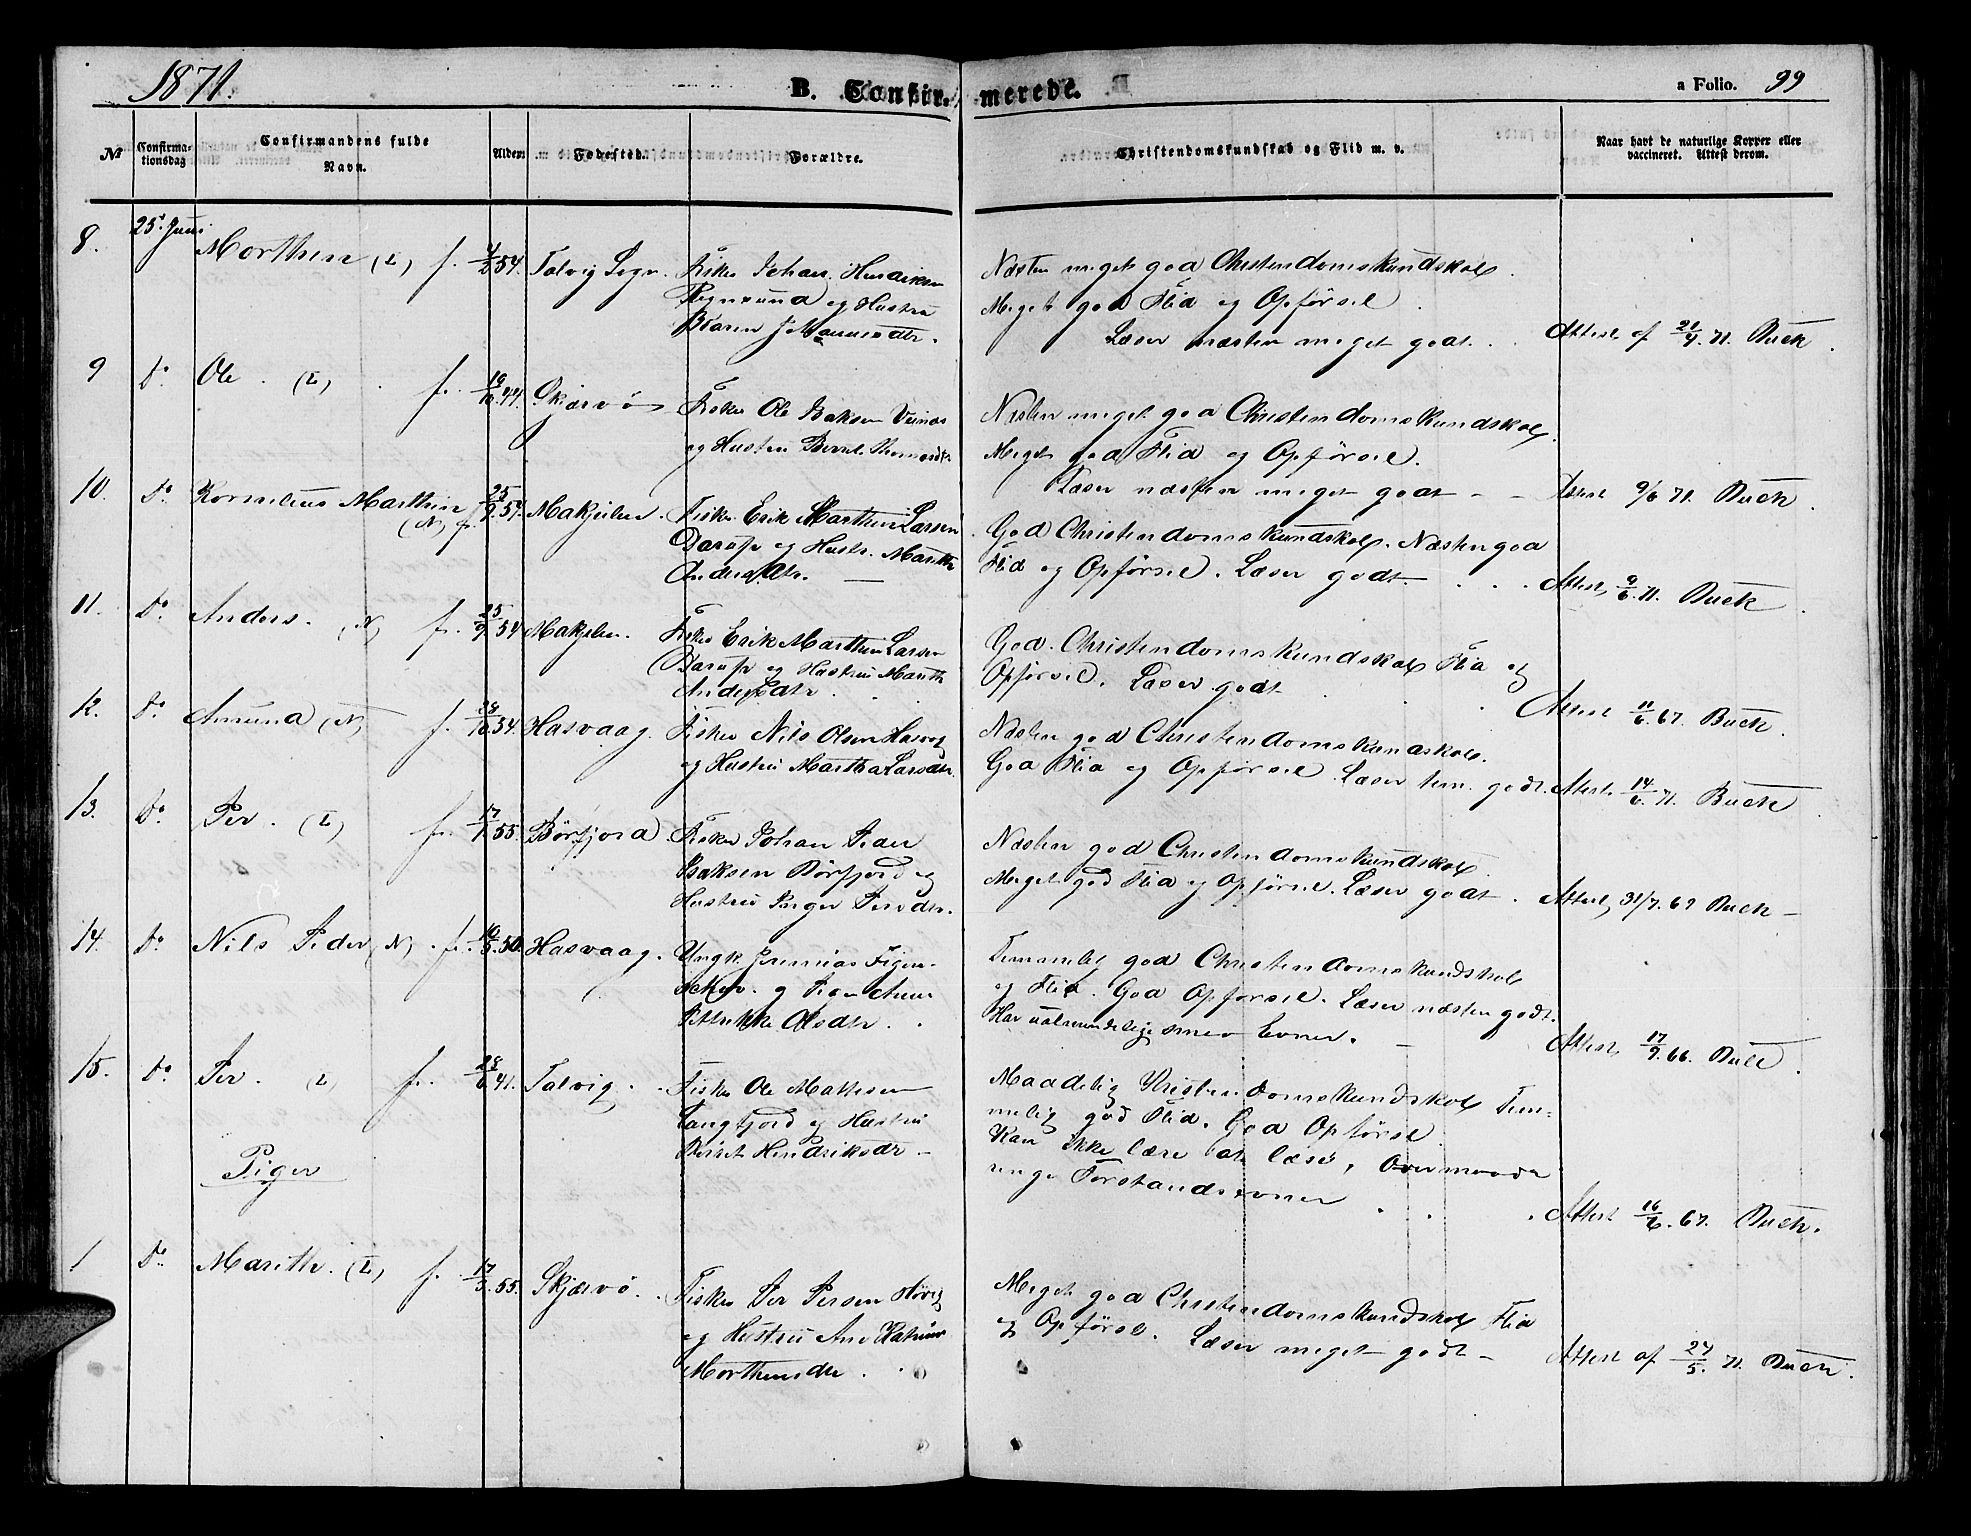 1871.
B. Confir- merede.
a Folio. 99
No
Confirma-
tionsdag
Confirmandens fulde
Navn.
Alder.
Fødested.
Forældre.
Christendomskundskab og Flid m. v.
Naar havt de naturlige Kopper eller
vaccineret. Attest derom.
8. 25' Juni Morthen (L) f. 54. Talvig Sogn.
Fisker Johan Hendriksen
og Hustru
Karen Johannesdtr.
Næsten meget god Christendomskundskab.
Meget god Flid og Opførsel.
Læser næsten meget godt.
Attest af 21/4. 71. Buck.
9 Do Ole. (L) f. 44. Skjærvø
Fisker Ole Isaksen
og Hustru Berret Thomasdtr
Næsten meget god Christendomskundskab.
Meget god Flid og Opførsel.
Læser næsten meget godt
Attest 9/6 71. Buck.
10. Do Kornelius Marthin (N) f. 25/9. 54. Makjelen.
Fisker Erik Marthin Larsen
og Hustr. Marith
Andersdtr.
God Christendomskundskab. Næsten god
Flid og Opførsel. Læser godt.
Attest, 9/6. 71. Buck
11. Do Anders. (N) f. 25/9 54 Makjelen.
Fisker Erik Marthin Larsen
og Hustru Marith
Andersdtr.
God Christendomskundskab Flid og
Opførsel. Læser godt
Attest 11/6. 67. Buck.
12. Do Amund (N) f. 28/10. 54. Hasvaag.
Fisker Nils Olsen Hasvag
og Hustru Martha Larsdtr.
Næsten god Christendomskundskab.
God Flid og Opførsel. Læser tem. godt.
Attest 14/6. 71. Buck
13. Do Per. (L) f. 17/1. 55. Børfjord.
Fisker Johan Peder
Isaksen Børfjord og
Hustru Inger Persdtr.
Næsten god Christendomskundskab.
Meget god Flid og Opførsel. Læser godt.
Attest, 31/7. 69 Buck
14. Do Nils Peder (N). f. 10/5. 50. Hasvaag.
Ungk. Jremias Figen-
schou. og Pigen Anne
Pettrikke Olsdtr.
Temmelig god Christendomskundskab
og Flid. God Opførsel. Læser næsten godt.
Har ualmindelige smaa Evner.
Attest, 17/9. 66. Buck.
15. Do Per. (L) f. 28/6. 41. Talvig.
Fisker Ole Mattesen
Langfjord og Hustru
Berret Hendriksdr
Maadelig Christendomskundskab Tem-
melig god Flid. God Opførsel.
Kan ikke lære at læse, Overmaade
ringe Forstandsevner
Attest 16/6. 67. Buck.
Piger
1 Do Marith. (L) f. 17/5. 55. Skjærvø.
Fisker Per Persen
og Hustru Ane Katrine
Morthensdtr.
Meget god Christendomskundskab Flid
og Opførsel. Læser meget godt
Attest af 27/5. 71. Buck.